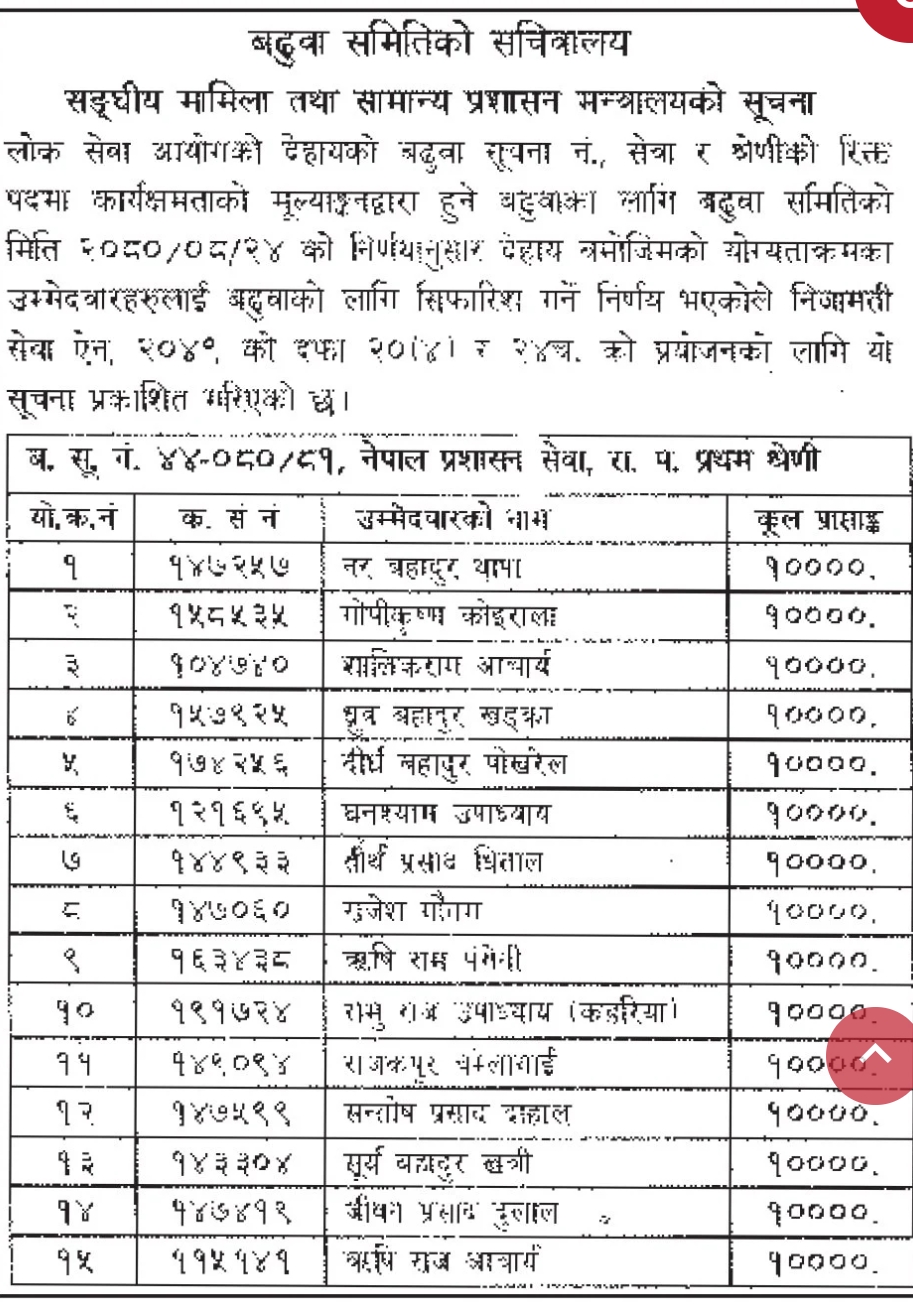 बढुवा समितिको सचिवालय
सङ्घीय मामिला तथा सामान्य प्रशासन मन्त्रालयको सूचना
लोक सेवा आयोगको देहायको बढुवा सूचना नं., सेवा र श्रेणीको रिक्त
पदमा कार्यक्षमताको मूल्याङ्कनद्वारा हुने बढुवाका लागि बढुवा समितिको
मिति २०८०/०८/२४ को निर्णयानुसार देहाय बमोजिमको योग्यताक्रमका
उम्मेदवारहरुलाई बढुवाको लागि सिफारिश गर्ने निर्णय भएकोले निजामती
सेवा ऐन, २०४९, को दफा २०(४) र २४च. को प्रयोजनको लागि यो
सूचना प्रकाशित गरिएको छ।
ब. सू. नं. ४४-०८०/८१, नेपाल प्रशासन सेवा, रा. प. प्रथम श्रेणी
यो.क्र.नं क. सं नं उम्मेदवारको नाम कूल प्राप्ताङ्क
१ १४७२५७ नर बहादुर थापा १००००.
२ १५८५३५ गोपीकृष्ण कोइराला १००००.
३ १०४७४० शालिकराम आचार्य १००००.
४ १५७९२५ ध्रुव बहादुर खड्का १००००.
५ १७४२५६ दीर्घ बहादुर पोखरेल १००००.
६ १२१६९५ घनश्याम उपाध्याय १००००.
७ १४४९३३ तीर्थ प्रसाद धिताल १००००.
८ १४७०६० राजेश गौतम १००००.
९ १६३४३८ ऋषि राम पंगेनी १००००.
१० १९१७२४ रामु राज उपाध्याय (कडरिया) १००००.
११ १४९०९४ राजकपुर चम्लागाई १००००.
१२ १४७५९९ सन्तोष प्रसाद दाहाल १००००.
१३ १४३३०४ सूर्य बहादुर खत्री १००००.
१४ १४७४१९ जीवन प्रसाद दुलाल १००००.
१५ ११५१४१ ऋषि राज आचार्य १००००.